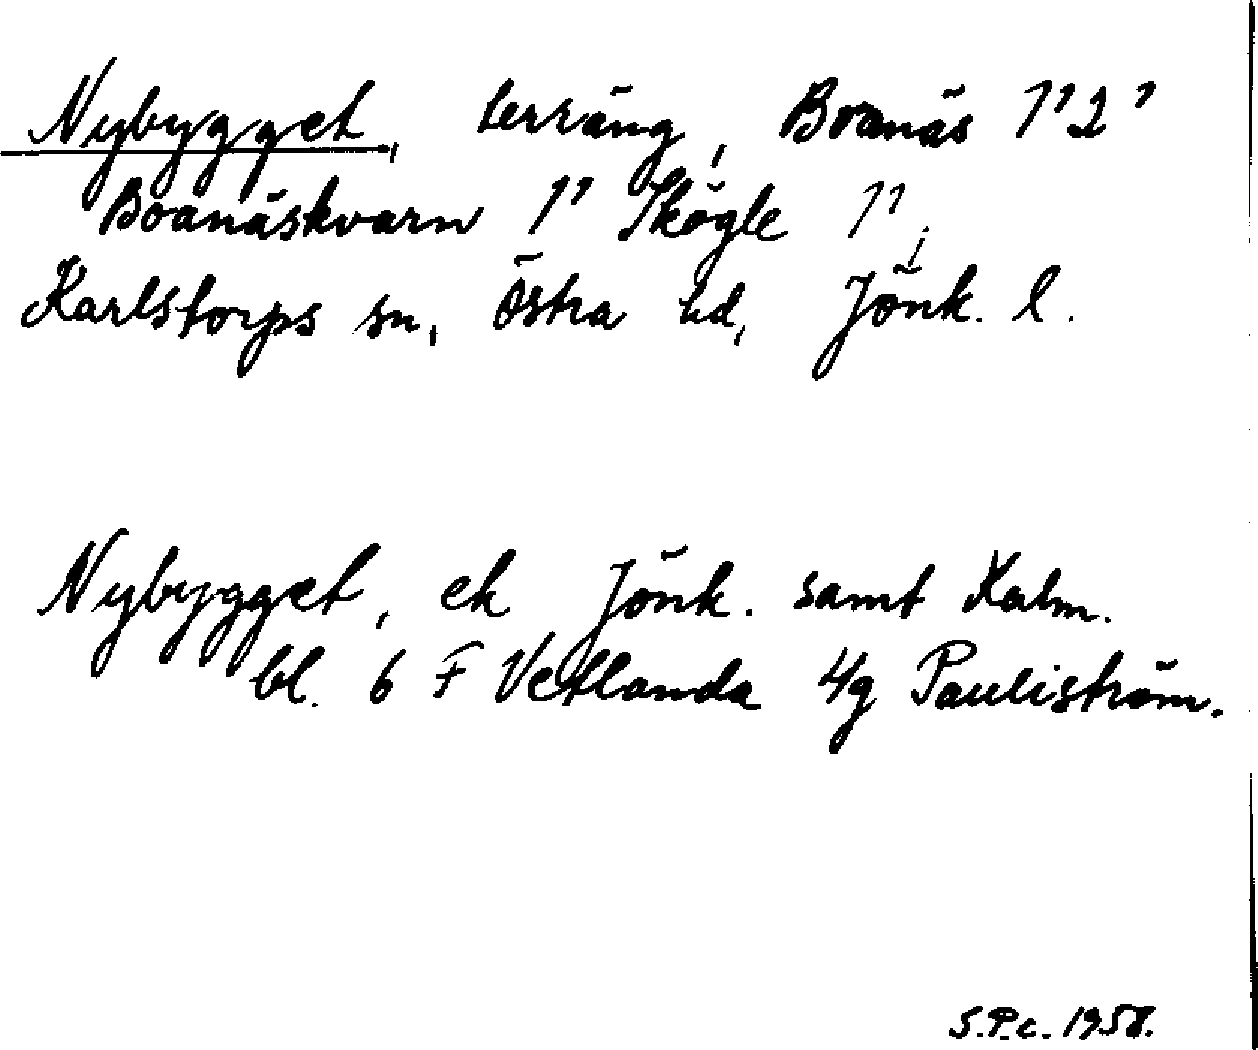 Nybygget, terräng, Boanäs 1'2'
Boanäskvarn 1' Skögle 1',
Karlstorps sn, Östra hd, Jönk. l.
Nybygget, ek Jönk. samt Kalm.
bl. 6 F Vetlanda 4g Pauliström.
S.P.c. 1958.